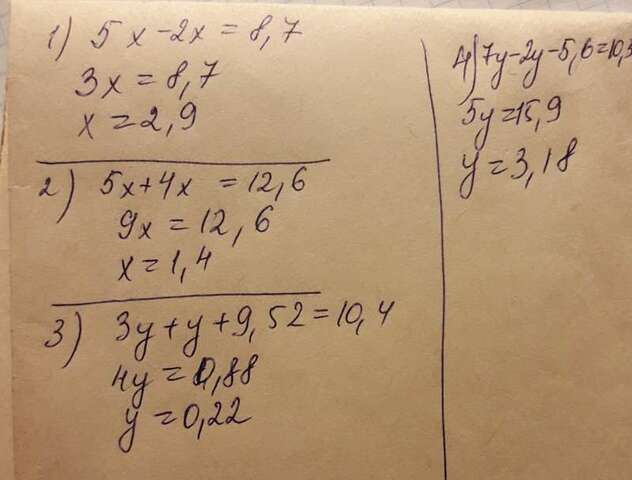 1) 5x-2x=8,7
3x=8,7
x=2,9
2) 5x+4x =12,6
9x=12,6
x=1,4
3) 3y+y+9,52=10,4
4y=0,88
y=0,22
4) 7y-2y-5,6=10,3
5y=15,9
y=3,18